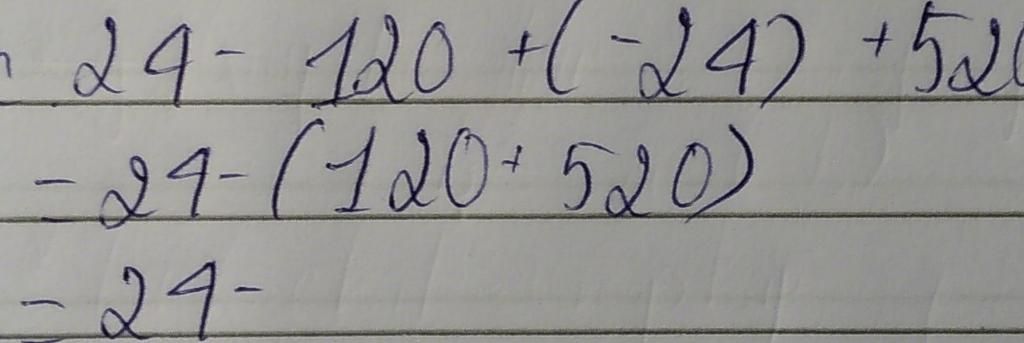 24 - 120 + (-24) + 520
= 24 - (120 + 520)
= 24 -